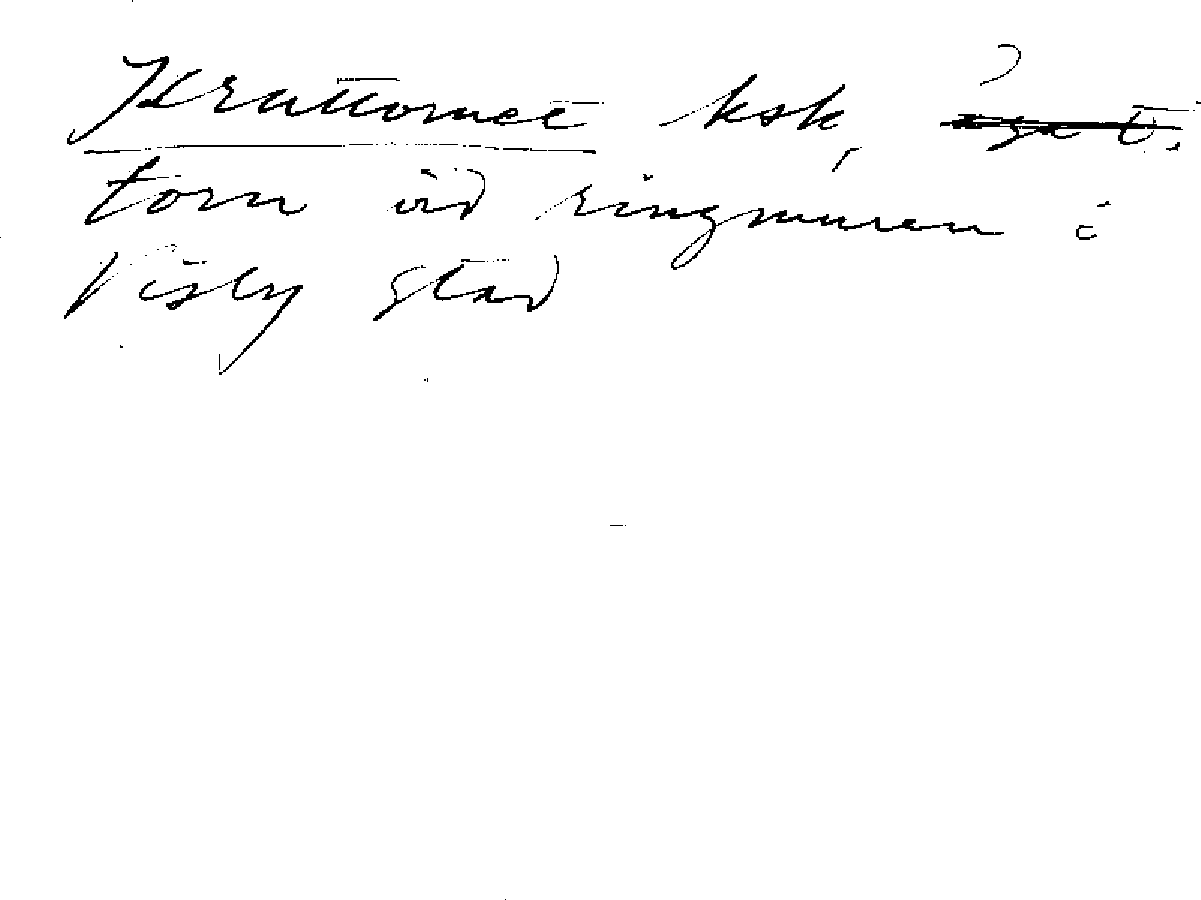 Kruttornet ksk,
torn vid ringmuren i
Visby stad